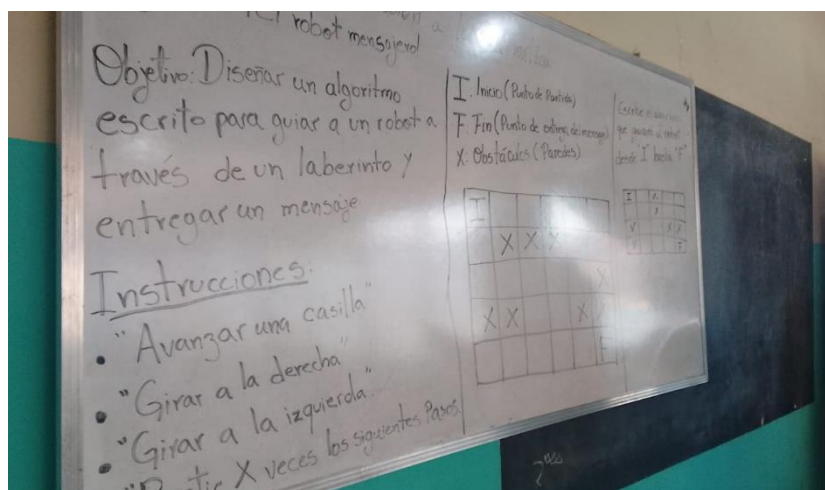 robot mensajero
Objetivo: Diseñar un algoritmo
escrito para guiar a un robot a
través de un laberinto y
entregar un mensaje
Instrucciones:
• "Avanzar una casilla"
• "Girar a la derecha"
• "Girar a la izquierda"
X veces los siguientes Pasos
I: Inicio (Punto de Partida)
F: Fin (Punto de entrega del mensaje)
X: Obstáculos (Paredes)
I
X X X
X
X X X X
F
que
desde I hasta "F"
I X
X
X X X
X F